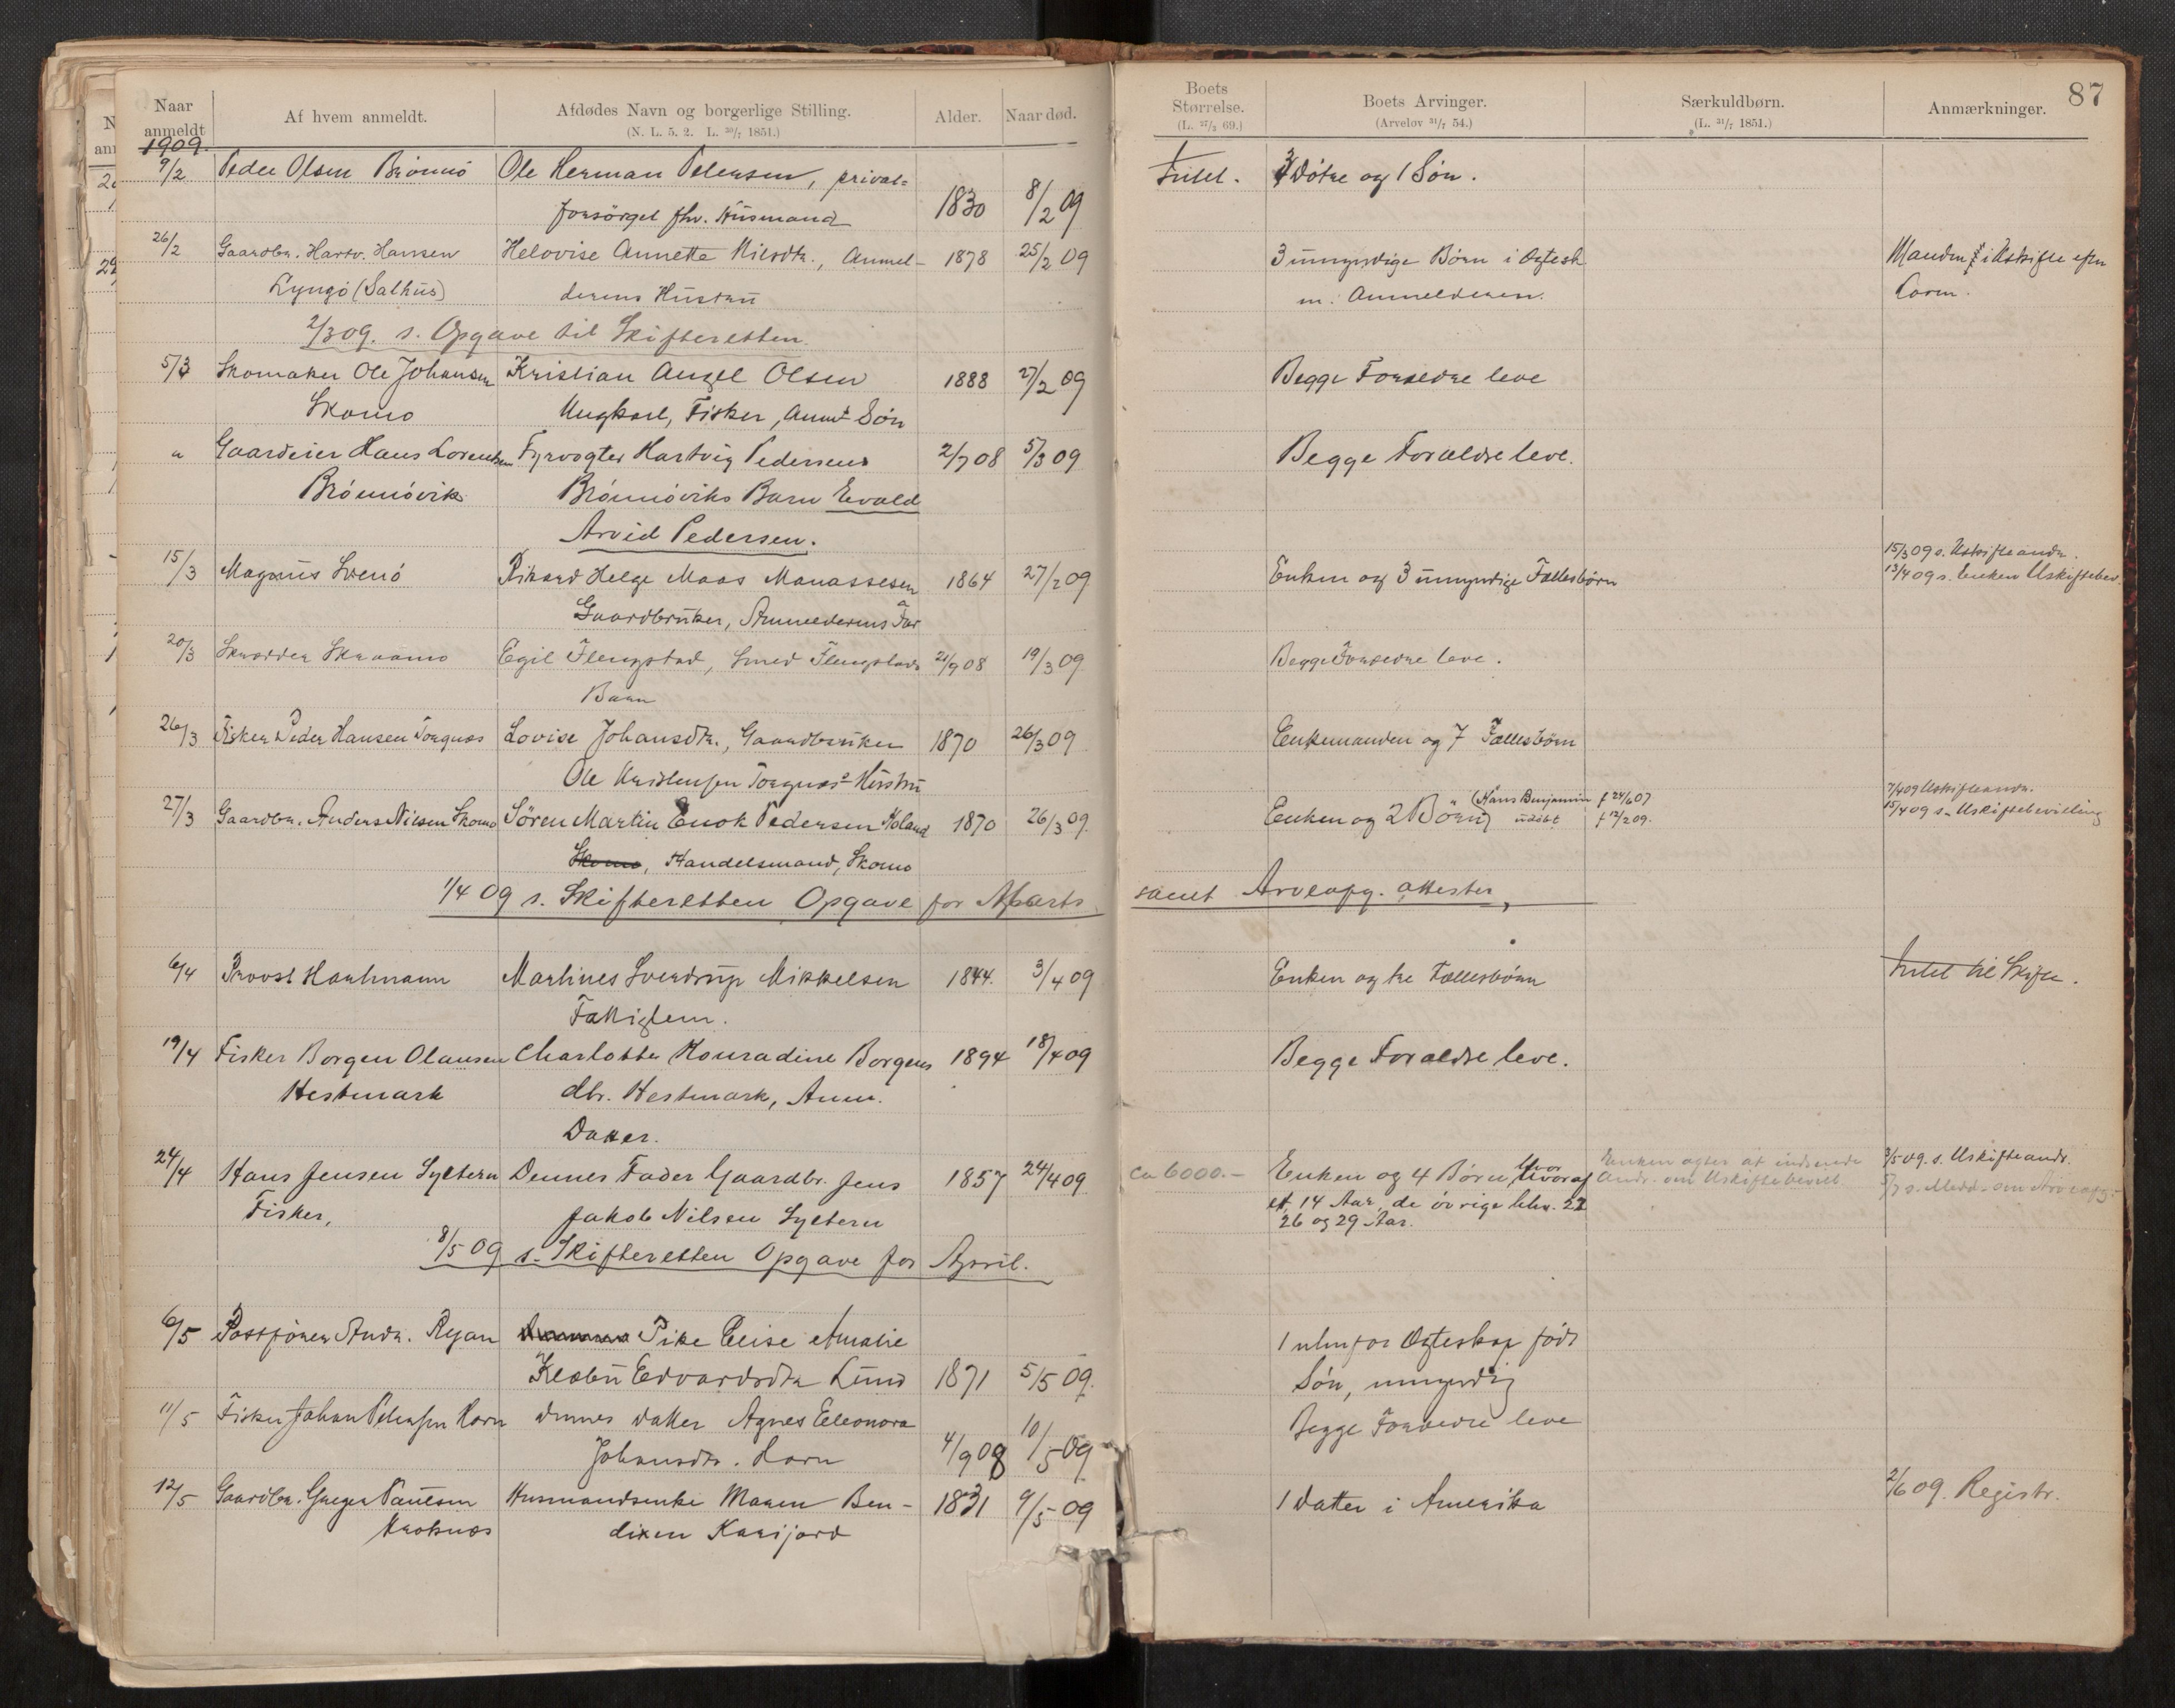 87
Naar anmeldt
Af hvem anmeldt.
Afdødes Navn og borgerlige Stilling.
(N. L. 5. 2. L. 30/7 1851.)
Alder.
Naar død.
Boets Størrelse.
(L. 27/3 69.)
Boets Arvinger.
(Arvelov 31/7 54.)
Særkuldbørn.
(L. 31/7 1851.)
Anmærkninger.
1909.
9/2 Peder Olsen Brønnø Ole Herman Petersen, privat= Intet. 3 Døtre og 1 Søn.
forsørget fhv. Husmand 1830 8/2 09
26/2 Gaardbr. Hartv. Hansen Helovise Annette Nilsdtr., Anmel- 1878 25/2 09 3 umyndige Børn i Ægtesk Manden i Uskifte efter
Lyngø (Salhus) derens Hustru m. Anmelderen. Loven.
2/3 09. s. Opgave til Skifteretten.
5/3 Skomaker Ole Johansen Kristian Angel Olsen 1888 27/2 09 Begge Forældre leve
Skomo Ungkarl, Fisker, Anm. Søn
" Gaardeier Hans Lorentsen Fyrvogter Hartvig Pedersens 2/7 08 5/3 09 Begge Forældre leve.
Brønnøvik Brønnøviks Barn Evald
Arvid Pedersen.
15/3 09 s. Uskifteandr.
15/3 Magnus Svenø Rikard Helge Maas Manassesen 1864 27/2 09 Enken og 3 umyndige Fællesbørn 13/4 09 s. Enken Uskiftebev.
Gaardbruker, Anmelderens Far
20/3 Skrædder Skraamo Egil Flengstad, Smed Flengstads 21/9 08 19/3 09 Begge Forældre leve.
Barn
26/3 Fisker Peder Hansen Torgnæs Lovise Johansdtr., Gaardbruker 1870 26/3 09 Enkemanden og 7 Fællesbørn
Ole Kristensen Torgnæs' Hustru
27/3 Gaardbr. Anders Nilsen Skomo Søren Martin Enok Pedersen Holand 1870 26/3 09. Enken og 2 Børn (Hans Benjamin f 24/6 07 7/4 09 Uskifteandr.
udøbt f 12/2 09. 15/4 09 s. Uskiftebevilling
Skomo, Handelsmand, Skomo
1/4 09 s. Skifteretten Opgave for Marts samt Arveopg. attester,
6/4 Provst Hartmann Martines Sverdrup Mikkelsen 1844. 3/4 09 Enken og tre Fællesbørn Intet til Skifte.
Fattiglem.
19/4 Fisker Borgen Olausen Charlotte Konradine Borgens 1894 18/4 09 Begge Forældre leve.
Hestmark dtr. Hestmark, Anm.
Datter.
24/4 Hans Jensen Syltern Dennes Fader Gaardbr. Jens 1857 24/4 09 ca 6000.- Enken og 4 Børn, hvoraf Enken agter at indsende andr. om Uskiftebevill 3/5 09. s. Uskifteandr.
Fisker, Jakob Nilsen Syltern et 14 Aar, de øvrige hhv. 22 5/7 s. Medd. om Arveopg.
26 og 29 Aar.
8/5 09 s. Skifteretten Opgave for April.
6/5 Postfører Andr. Ryan Pike Elise Amalie 1 utenfor Ægteskap født
Klæbu Edvardsdtr Lund 1871 5/5 09. Søn, umyndig
11/5 Fisker Johan Petersen Horn dennes datter Agnes Eleonora Begge Forældre leve
Johansdtr. Horn 4/9 08 10/5 09
12/5 Gaardbr. Paulsen Husmandsenke Maren Ben- 1831 9/5 09 1 Datter i Amerika 2/6 09. Registr.
Kroknæs dixen Karijord